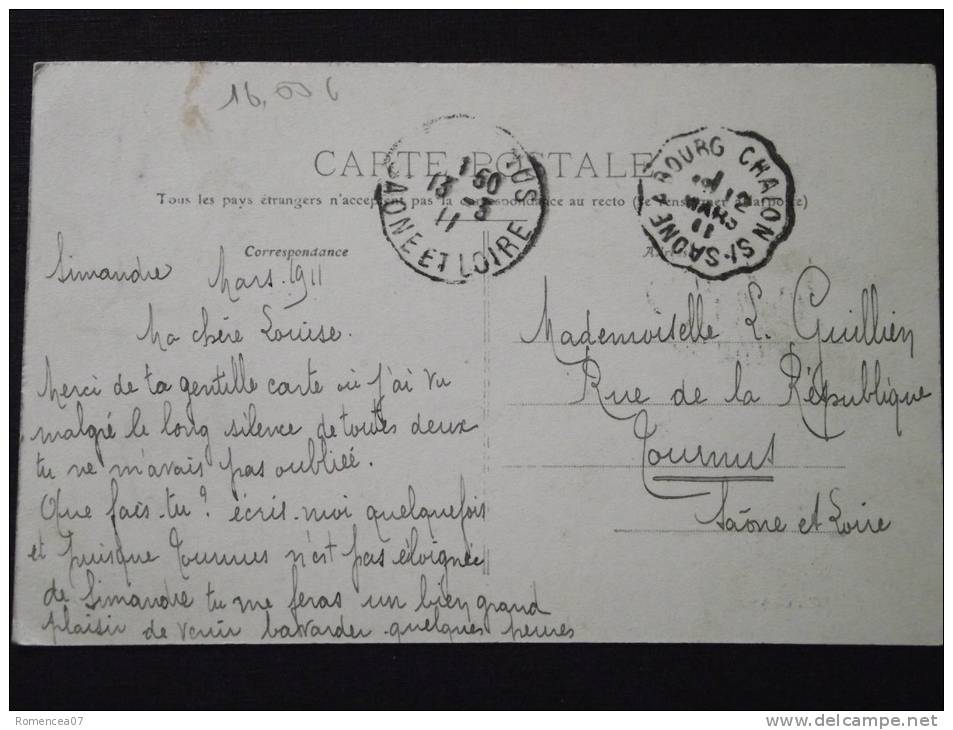 16,05 €
CARTE POSTALE
Tous les pays étrangers n'acceptent pas la correspondance au recto (Se renseigner à la poste)
1 50
13 -3
11
SAONE ET LOIRE
BOURG A CHALON S/-SAONE
12
MARS
11
Correspondance
Simandre Mars 1911
Ma chère Louise.
Merci de ta gentille carte où j'ai vu
malgré le long silence de toutes deux
tu ne m'avais pas oubliée.
Que fais-tu? écris-moi quelquefois
et puisque Tournus n'est pas éloignée
de Simandre tu me feras un bien grand
plaisir de venir bavarder quelques
Mademoiselle L. Guillien
Rue de la République
Tournus
Saône et Loire
Romencea07
www.delcampe.net